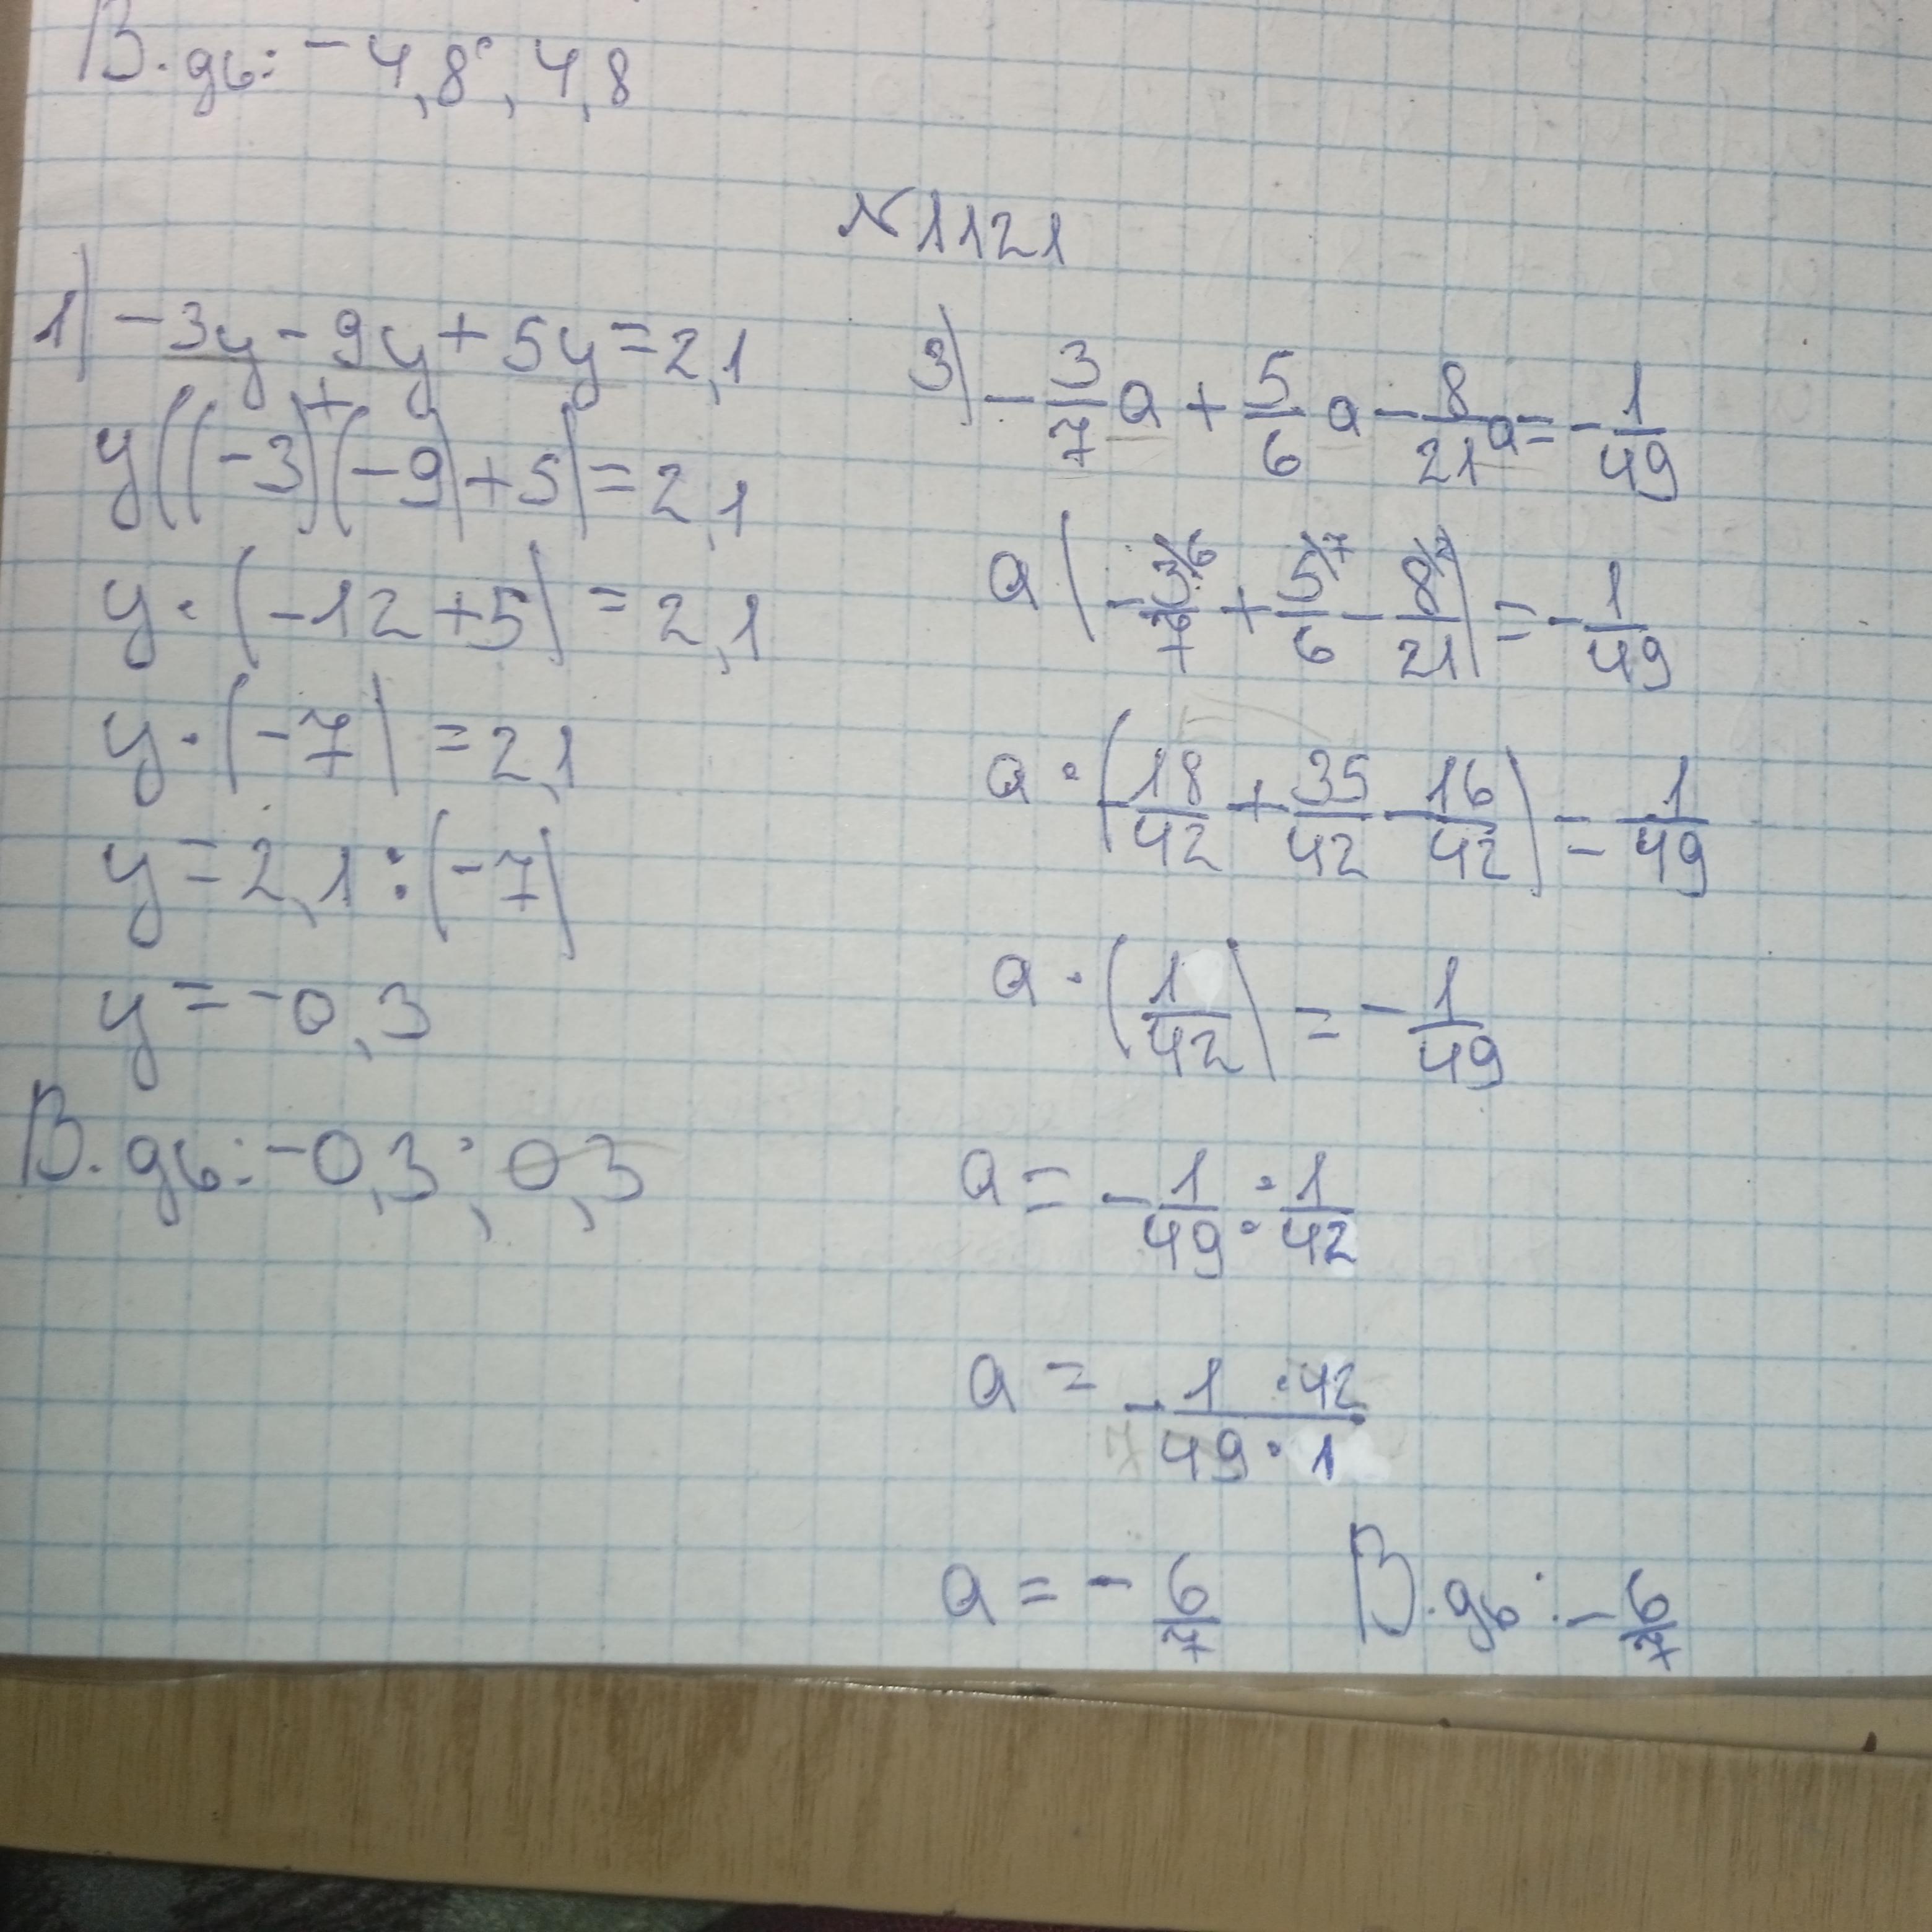 В. дь: -4,8; 4,8
№1121
1) -3y - 9y + 5y = 2,1
y((-3)+(-9)+5) = 2,1
y·(-12+5) = 2,1
y·(-7) = 2,1
y = 2,1:(-7)
y = -0,3
В. дь: -0,3; 0,3
3) -3/7 a + 5/6 a - 8/21 a = -1/49
a(-3/7 + 5/6 - 8/21) = -1/49
a·(-18/42 + 35/42 - 16/42) = -1/49
a·(1/42) = -1/49
a = -1/49 : 1/42
a = -1·42/49·1
a = -6/7
В. дь: -6/7